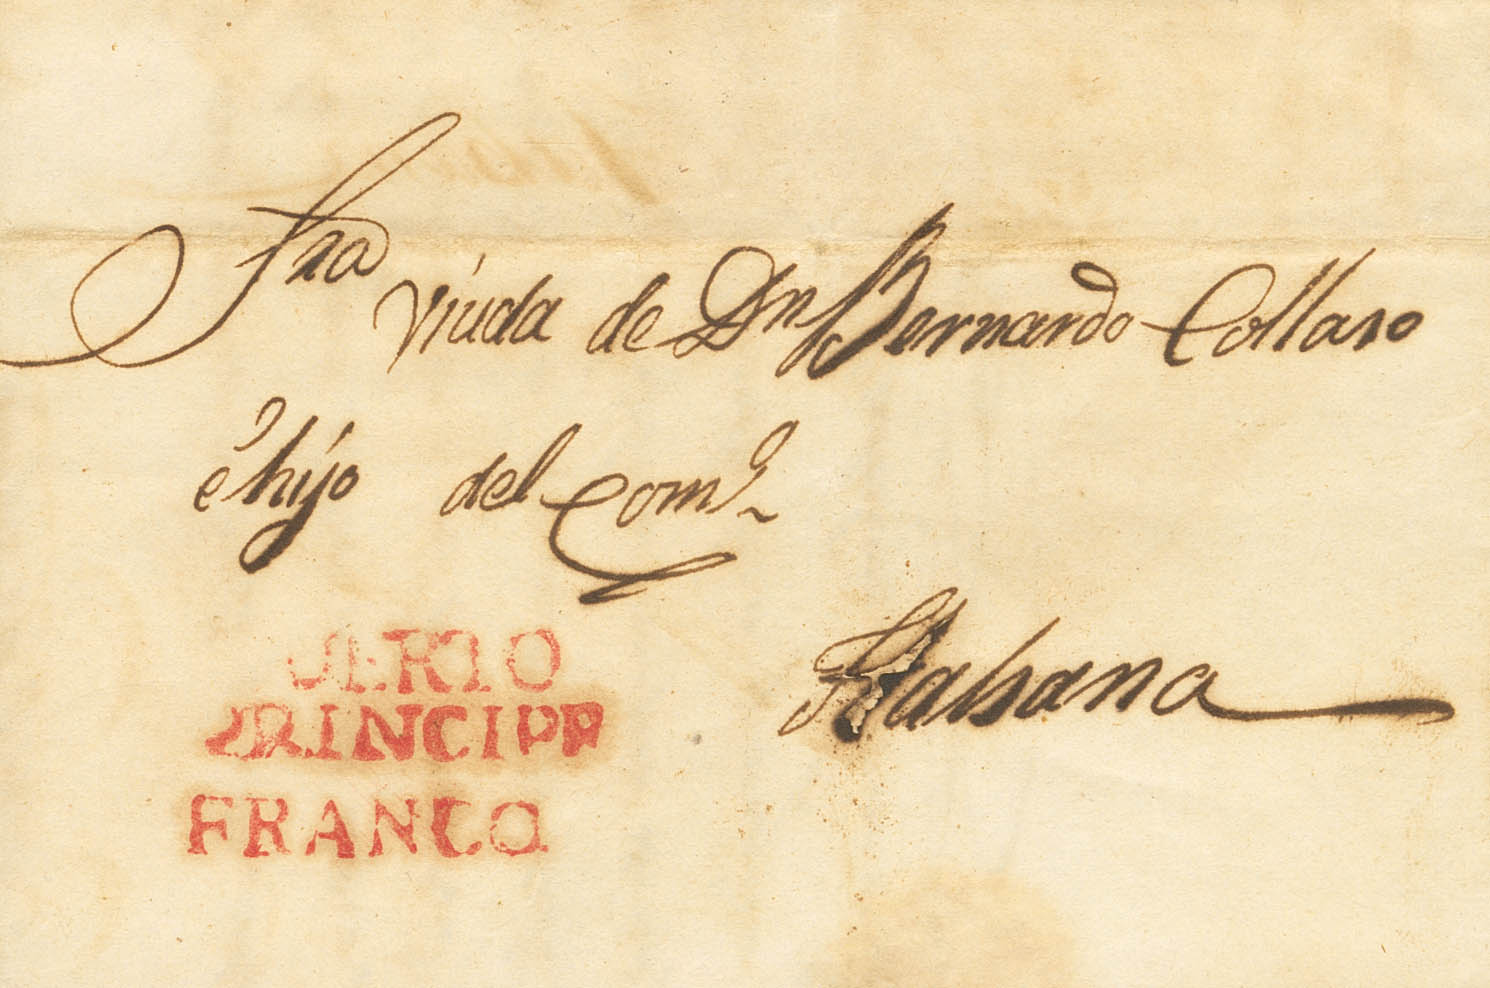 Sra
viuda de Dn Bernardo Collaso
é hijo del Como
Habana
PUERTO
PRINCIPE
FRANCO